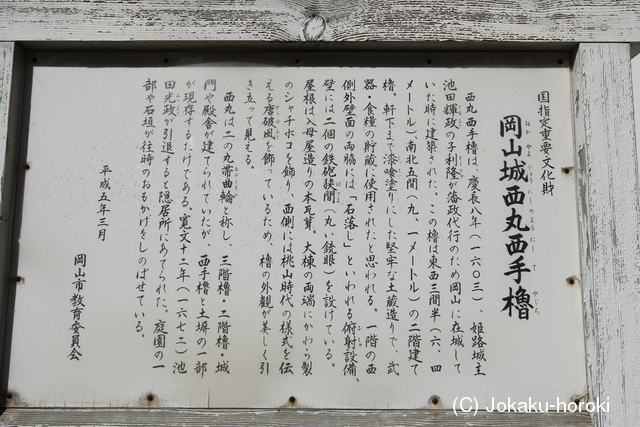 国指定重要文化財
岡山城西丸西手櫓
おかやまじょうにしのまるにしてやぐら
西丸西手櫓は、慶長八年（一六〇三）、姫路城主
池田輝政の子利隆が藩政代行のため岡山に在城して
いた時に建築された。この櫓は東西三間半（六、四
メートル）、南北五間（九、一メートル）の二階建て
櫓。軒下まで漆喰塗りにした堅牢な土蔵造りで、武
器・食糧の貯蔵に使用されたと思われる。一階の西
側外壁面の両脇には「石落し」といわれる俯射設備、
壁には二個の鉄砲狭間（丸い銃眼）を設けている。
屋根は入母屋造りの本瓦葺。大棟の両端にかわら製
のシャチホコを飾り、西側には桃山時代の様式を伝
える唐破風を飾っているため、櫓の外観が美しく引
き立って見える。
西丸は二の丸帯曲輪と称し、三階櫓・二階櫓・城
門や殿舎が建てられていたが、西手櫓と土塀の一部
が現存するだけである。寛文十二年（一六七二）池
田光政が引退すると隠居所にあてられた。庭園の一
部や石垣が往時のおもかげをしのばせている。
平成五年三月
岡山市教育委員会
(C) Jokaku-horoki